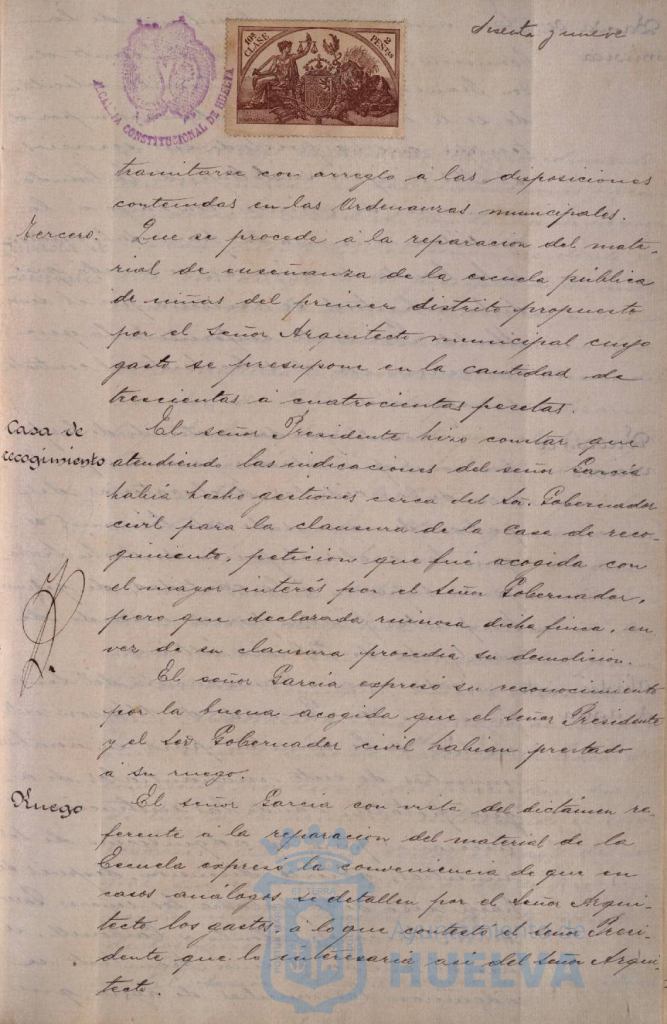 Sesenta y nueve
ALCALDIA CONSTITUCIONAL DE HUELVA
10ª CLASE
2 PESETAS
tramitarse con arreglo a las disposiciones
contenidas en las Ordenanzas municipales.
Tercero: Que se proceda á la reparacion del mate-
rial de enseñanza de la escuela pública
de niñas del primer distrito propuesto
por el Señor Arquitecto municipal cuyo
gasto se presupone en la cantidad de
trescientas a cuatrocientas pesetas.
Casa de recogimiento
El señor Presidente hizo constar que
atendiendo las indicaciones del señor García
habia hecho gestiones cerca del Sor. Gobernador
civil para la clausura de la Casa de reco-
gimiento, peticion que fué acogida con
el mayor interés por el Señor Gobernador,
pero que declarada ruinosa dicha finca, en
vez de su clausura procedia su demolicion.
El señor García expresó su reconocimiento
por la buena acogida que el señor Presidente
y el Sor. Gobernador civil habian prestado
á su ruego.
Ruego
El señor García con vista del dictámen re-
ferente á la reparacion del material de la
Escuela expresó la conveniencia de que en
casos análogos se detallen por el Señor Arqui-
tecto los gastos, á lo que contestó el señor Presi-
dente que lo interesaria asi del Señor Arqui-
tecto.
Ayuntamiento de
HUELVA